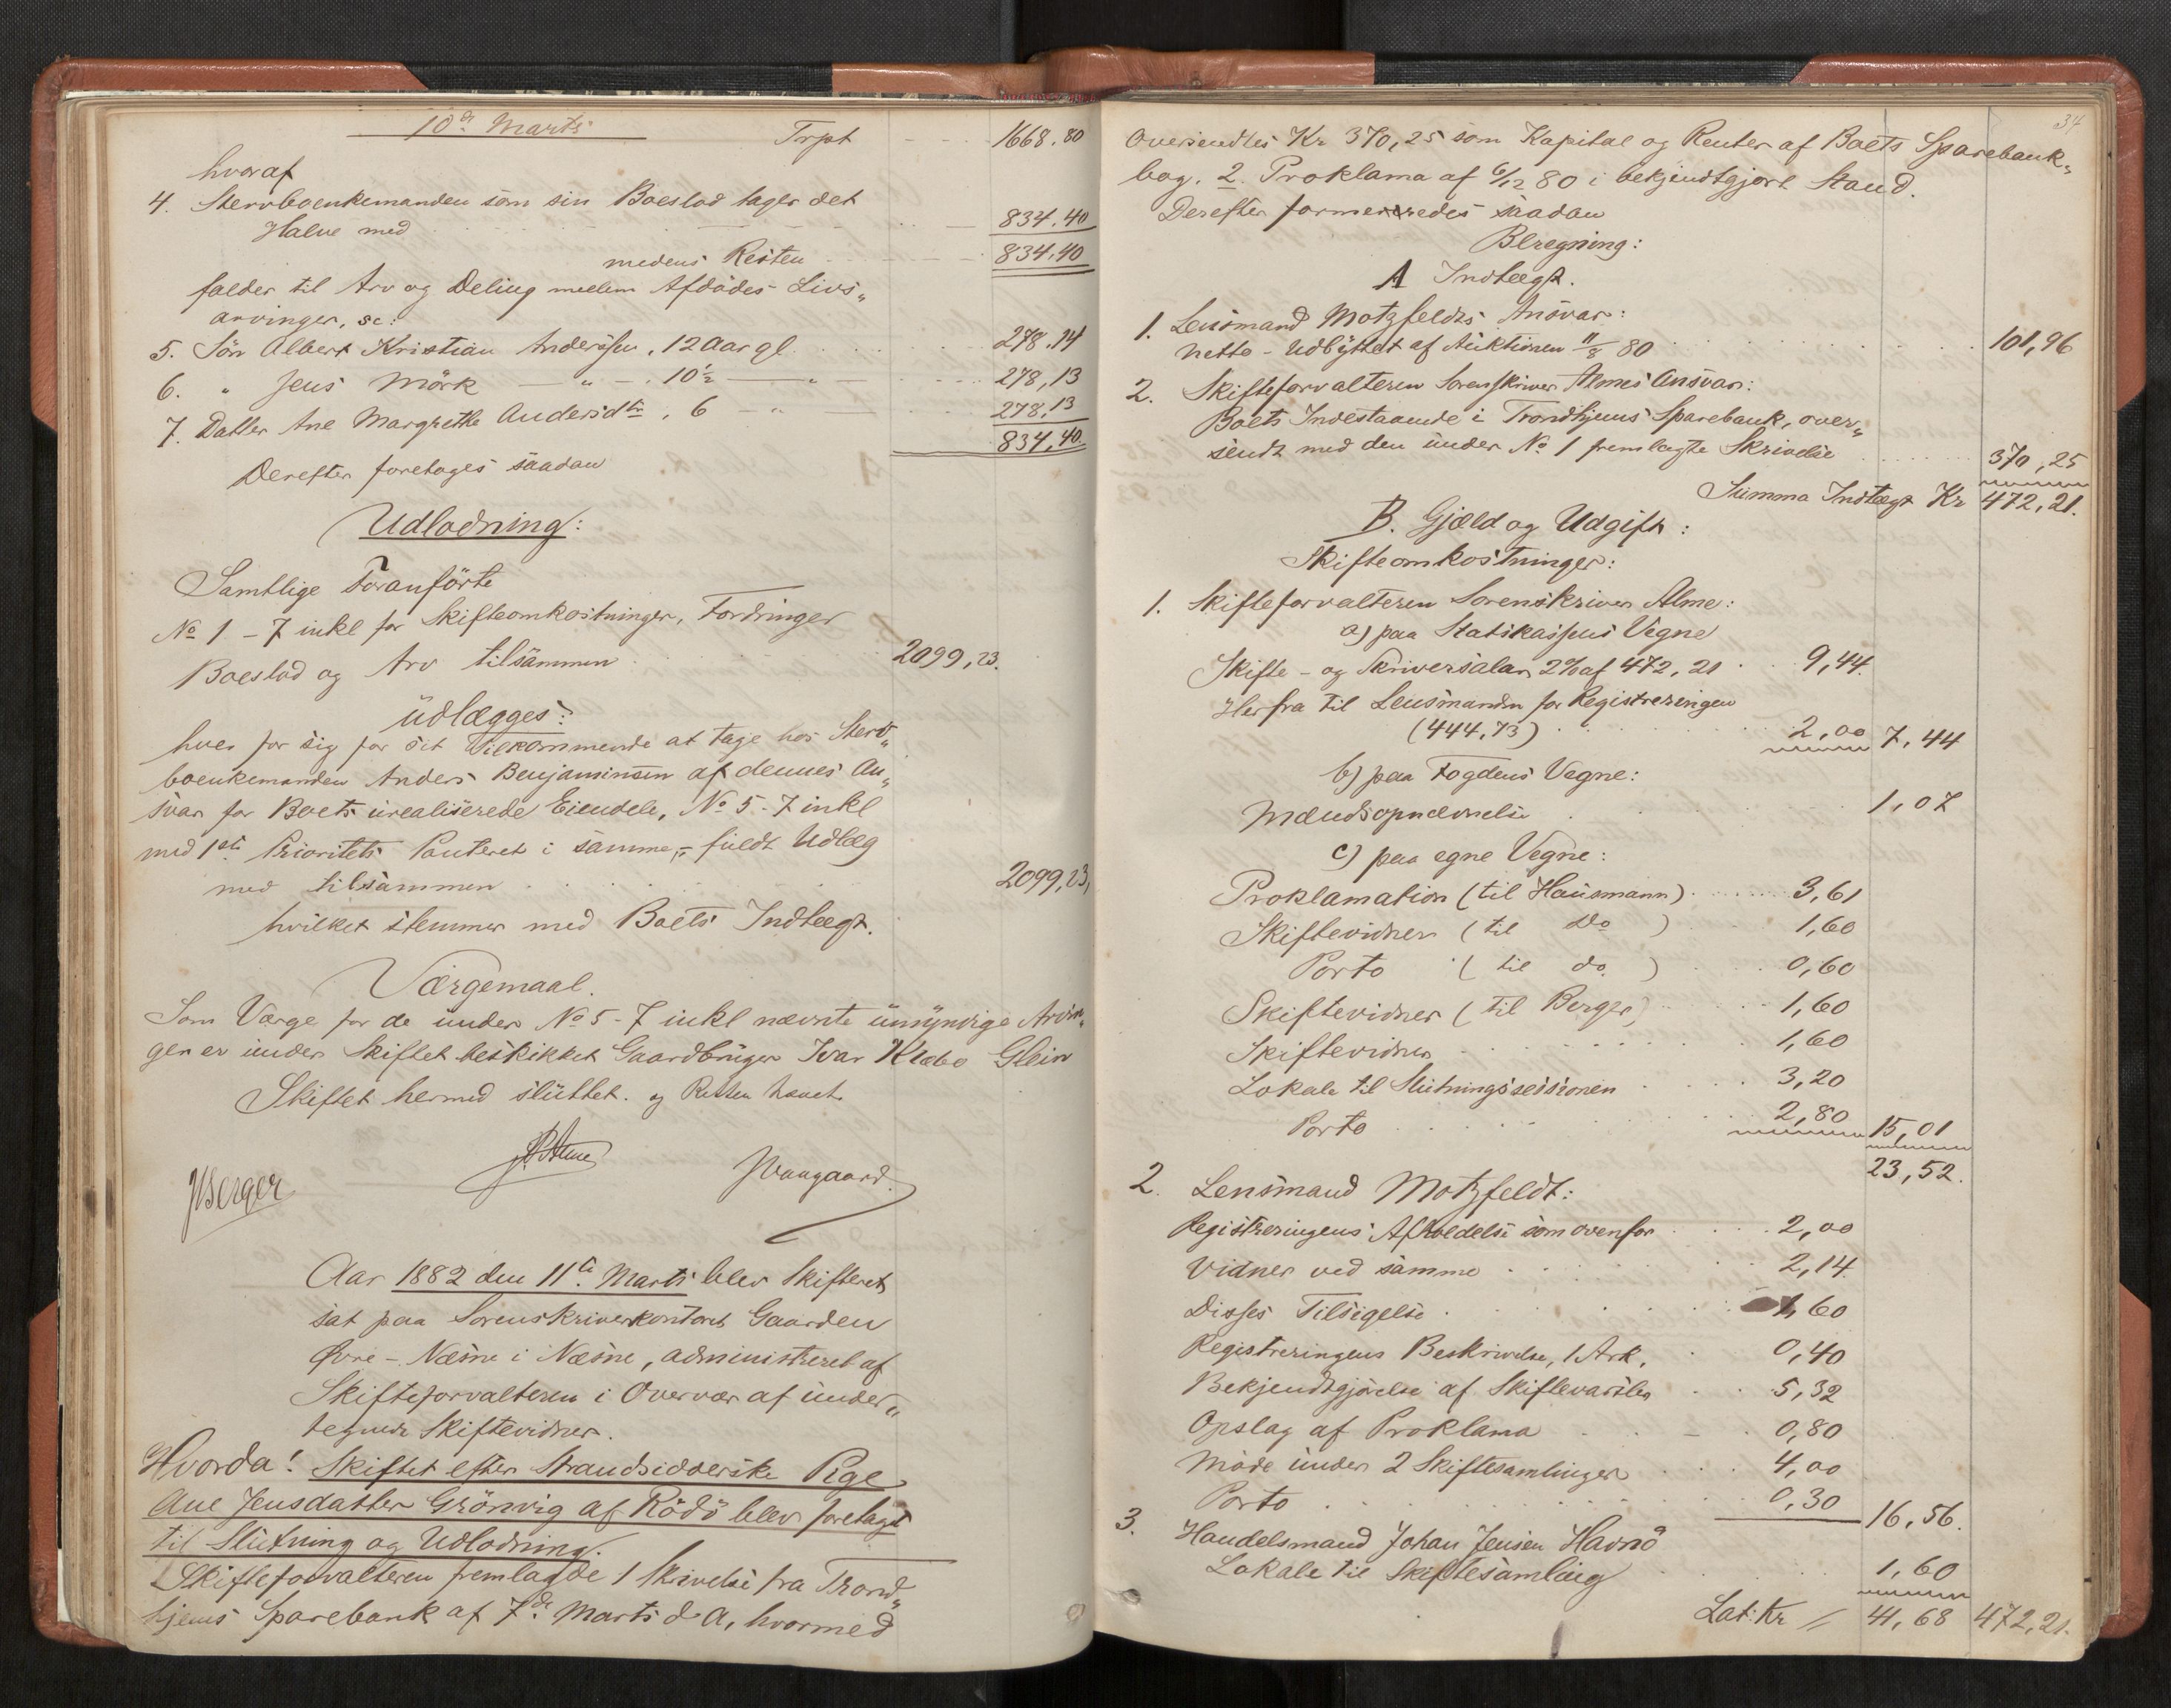 10de Marts
Trpt - - - 1668.80
hvoraf
4. Stervboenkemanden som sin Boeslod tager det
Halve med - - - 834.40
medens Resten - - - 834.40
falder til Arv og Deling mellem Afdødes Livs„
arvinger, sc:
5. Søn Albert Kristian Anderssen, 12 Aar gl. 278.14
6. „ Jens Mörk — „ — . 10½ — „ — 278,13
7. Datter Ane Margrethe Andersdtr, 6 — „ — 278,13
834,40.
Derefter foretoges saadan
Udlodning:
Samtlige Foranførte
No 1 - 7 inkl for Skifteomkostninger, Fordringer
Boeslod og Arv tilsammen 2099,23.
udlægges:
hver for sig for sit Vilkommende at tage hos Sterv„
boenkemanden Anders Benjaminsen af dennes An„
svar for Boets urealiserede Eiendele, No 5-7 inkl
med 1ste Prioritets Panteret i samme, - fuldt Udlæg
med tilsammen 2099,23,
hvilket stemmer med Boets Indtægt.
Værgemaal.
Som Værge for de under No 5-7 inkl nævnte umyndige Arvin„
ger er under Skiftet beskikket Gaardbruger Ivar Klæbo Glein
Skiftet hermed sluttet. og Retten hævet.
JBerger
Aar 1882 den 11te Marts blev Skifteret
sat paa Sorenskriverkontoret Gaarden
Øvre - Næsne i Næsne, administreret af
Skifteforvalteren i Overvær af under„
tegnede Skiftevidner.
Hvorda! Skiftet efter Strandsidderske Pige
Ane Jensdatter Grönvig af Rödö blev foretaget
til Slutning og Udlodning.
Skifteforvalteren fremlagde 1 Skrivelse fra Trond„
hjems Sparebank af 7de Marts d A, hvormed
34
oversendtes Kr 370,25 som Kapital og Renter af Boets Sparebank„
bog. 2. Proklama af 6/12 80 i bekjendtgjort Stand.
Derefter formeredes saadan
Beregning:
A Indtægt.
1. Lensmand Motzfeldts Ansvar:
Netto - Udbyttet af Auktionen 11/8 80 101,96
2. Skifteforvalteren Sorenskriver Almes Ansvar:
Boets Indestaaende i Trondhjems Sparebank, over„
sendt med den under No 1 fremlagte Skrivelse 370,25
Summa Indtægt Kr 472,21.
B. Gjæld og Udgift:
Skifteomkostninger:
1. Skifteforvalteren Sorenskriver Alme:
a) paa Statskassens Vegne
Skifte - og Skriversalær 2% af 472,21 9,44.
Herfra til Lensmanden for Registreringen
(444,73) 2,00 7,44
b) paa Fogdens Vegne:
Mændsopnævnelse 1,07
c) paa egne Vegne:
Proklamation (til Hausmann) 3,61
Skiftevidner (til Do ) 1,60
Porto ( til do. ) 0,60
Skiftevidner ( til Berger) 1,60
Skiftevidner 1,60
Lokale til Slutningssessionen 3,20
Porto 2,80 15,01
23,52.
2. Lensmand Motzfeldt:
Registreringens Afholdelse som ovenfor 2,00
Vidner ved samme 2,14.
Disses Tilsigelse 1,60
Registreringens Beskrivelse, 1 Ark. 0,40
Bekjendtgjørelse af Skiftevarsler 5,32
Opslag af Proklama 0,80
Møde under 2 Skiftesamlinger 4,00
Porto 0,30 16,56.
3. Handelsmand Johan Jensen Havnö
Lokale til Skiftesamling 1,60
Lat: Kr 41,68 472,21.